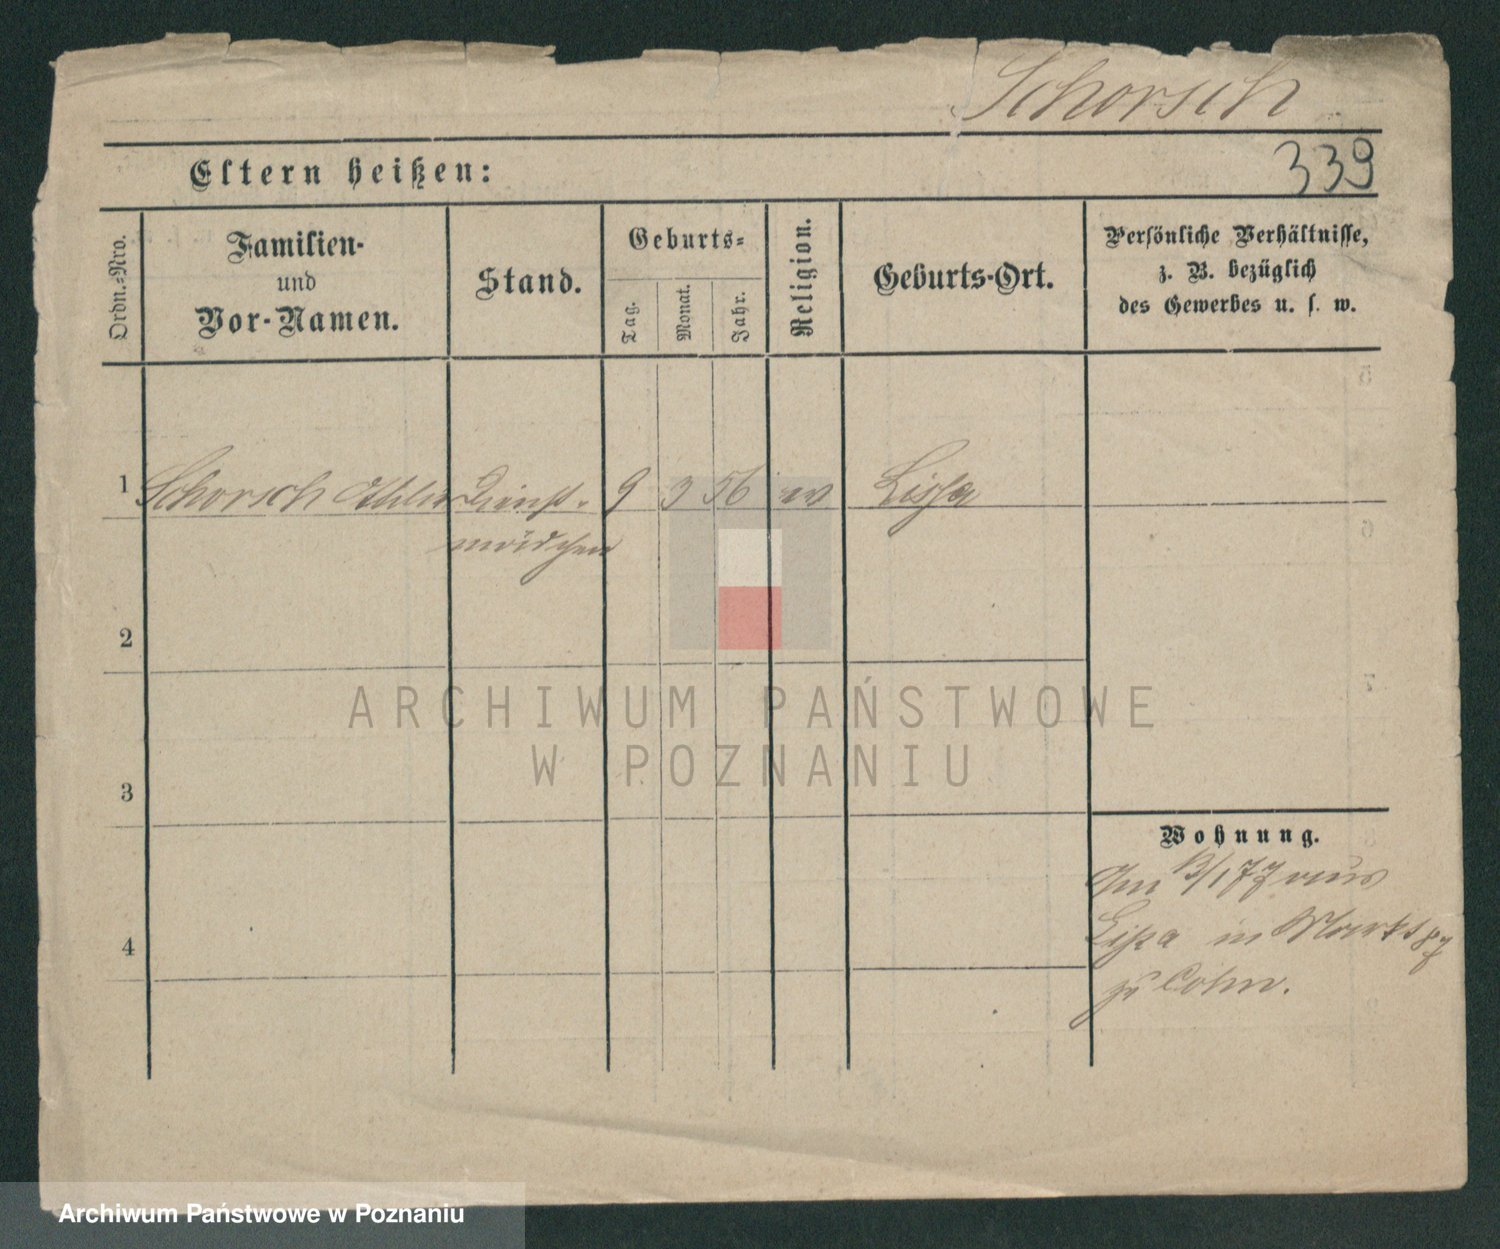 Schorsch
339
Eltern heißen:
Ordn.-Nro.
Familien-
und
Vor-Namen.
Stand.
Geburts-
Tag.
Monat.
Jahr.
Religion.
Geburts-Ort.
Persönliche Verhältnisse,
z. B. bezüglich
des Gewerbes u. s. w.
1 Schorsch Dienst- 9 3 56 ev Lissa
mädchen
2
3
4
Wohnung.
Am 13/1 77 aus
Lissa in Markt 87
zu Cohn.
ARCHIWUM PAŃSTWOWE
W POZNANIU
Archiwum Państwowe w Poznaniu